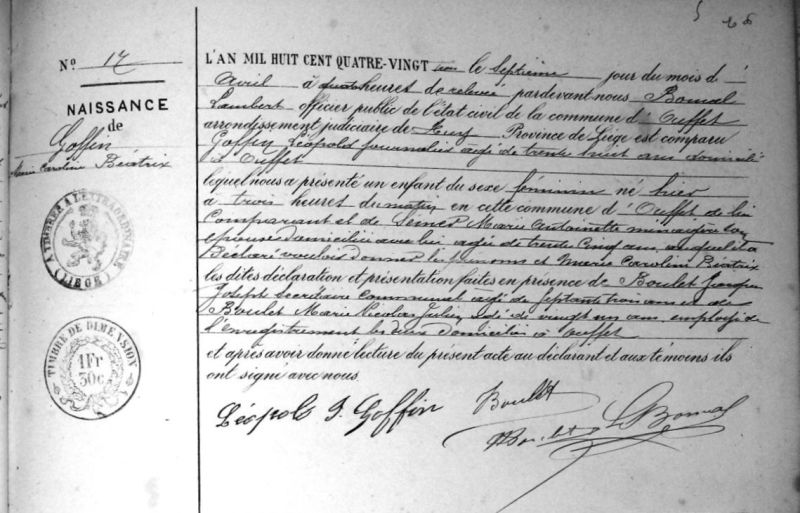 5
26
Nº 17
NAISSANCE
de
Goffin
Marie Caroline Béatrix
A TIMBRER A L'EXTRAORDINAIRE
(LIEGE)
TIMBRE DE DIMENSION
1Fr
30c
L'AN MIL HUIT CENT QUATRE-VINGT trois le septième jour du mois d'
Avril à quatre heures de relevée pardevant nous Bomal
Lambert officier public de l'état civil de la commune d'Ouffet
arrondissement judiciaire de Huy Province de Liége est comparu
Goffin Léopold journalier agé de trente huit ans domicilié
à Ouffet
lequel nous a présenté un enfant du sexe féminin né hier
à trois heures du matin en cette commune d'Ouffet de lui
Comparant et de Marie Antoinette ménagère son
épouse domiciliée avec lui agée de trente cinq ans, auquel il a
Déclaré vouloir donner les prénoms de Marie Caroline Béatrix
les dites déclaration et présentation faites en présence de Boulet
Joseph Secrétaire communal agé de septante trois ans et de
Boulet Marie Nicolas Julien agé de vingt un ans, employé de
l'Enregistrement les deux domiciliés à Ouffet
et après avoir donné lecture du présent acte au déclarant et aux témoins ils
ont signé avec nous.
Léopold J. Goffin Boulet
Boulet L Bomal